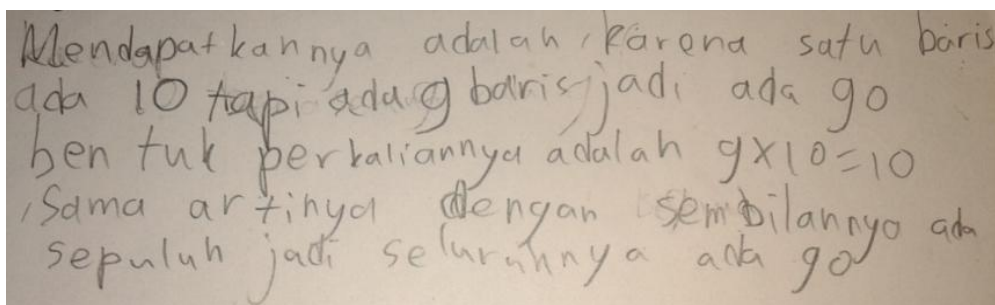 Mendapatkannya adalah, karena satu baris
ada 10 tapi ada 9 baris jadi ada 90
bentuk perkaliannya adalah 9x10=10
, Sama artinya dengan sembilannya ada
sepuluh jadi seluruhnya ada 90